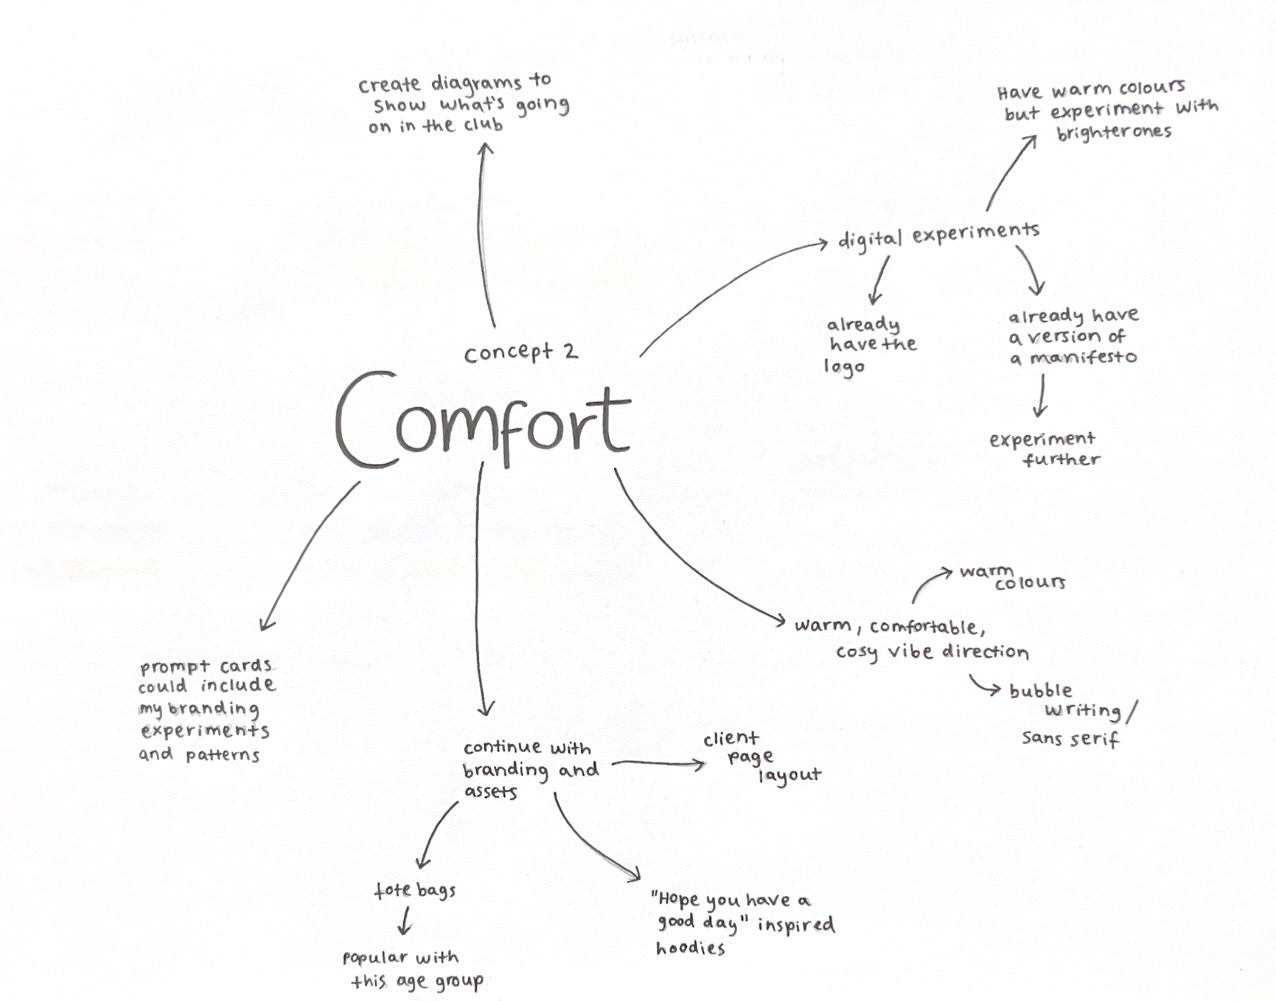 create diagrams to
show what's going
on in the club
Have warm colours
but experiment with
brighter ones
digital experiments
already
have the
logo
already have
a version of
a manifesto
experiment
further
concept 2
Comfort
warm
colours
warm, comfortable,
cosy vibe direction
bubble
writing/
sans serif
prompt cards
could include
my branding
experiments
and patterns
continue with
branding and
assets
client
page
layout
tote bags
popular with
this age group
"Hope you have a
good day" inspired
hoodies